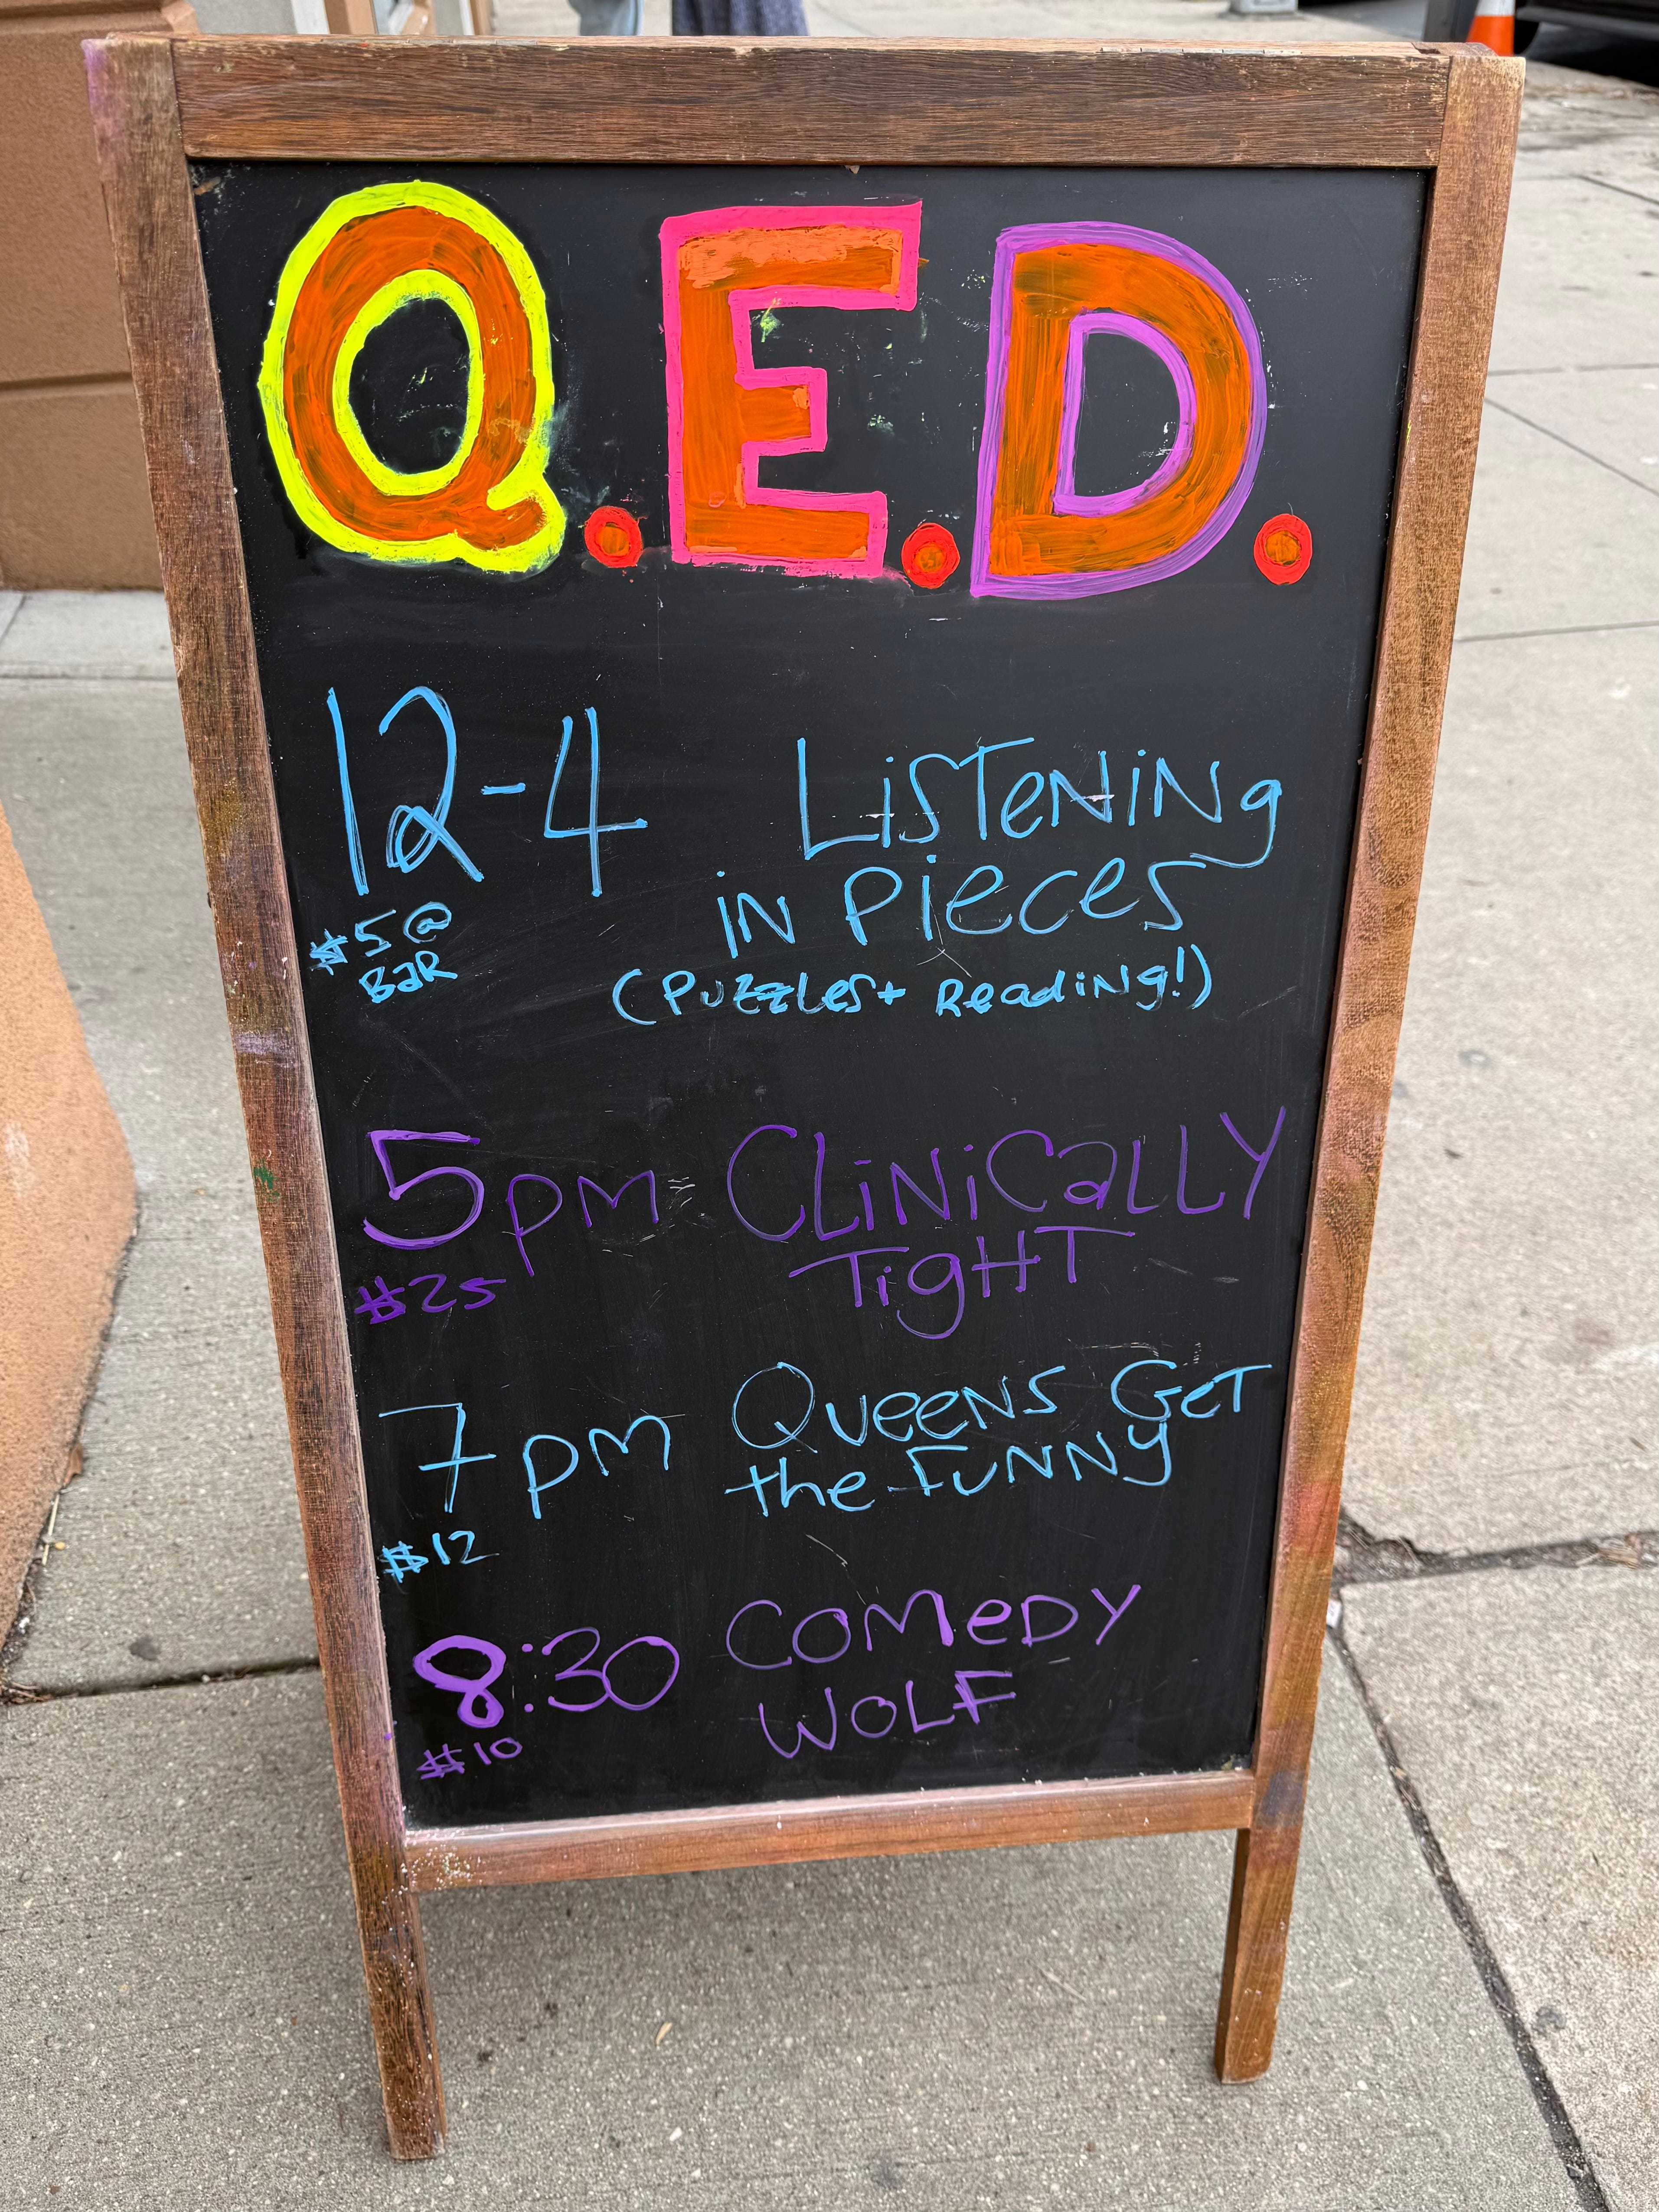 Q.E.D.
12-4 Listening
in Pieces
$5@
Bar
(Puzzles + Reading!)
5pm Clinically
Tight
$25
7pm Queens Get
the Funny
$12
8:30 Comedy
Wolf
$10